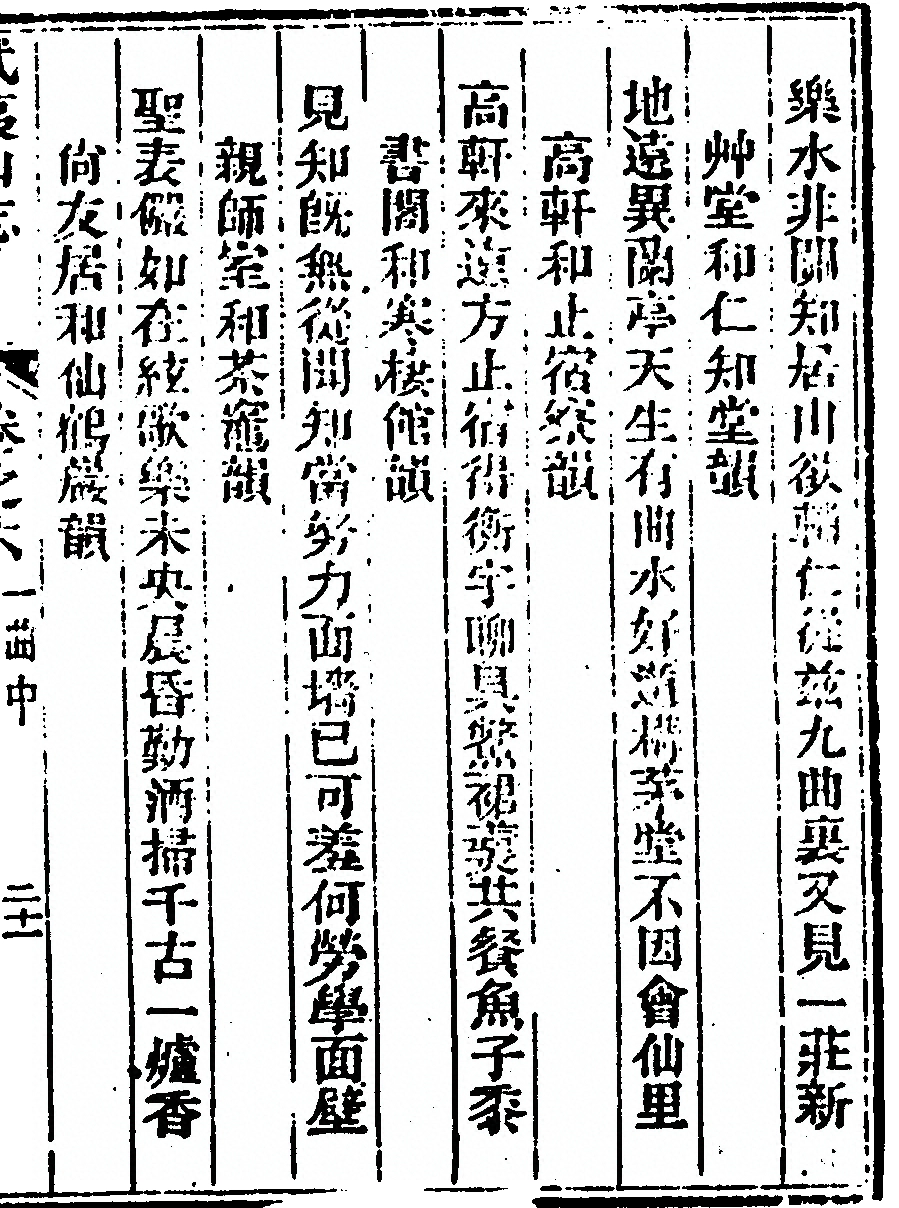 樂水非關知居山欲輔仁從茲九曲裏又見一莊新
艸堂和仁知堂韻
地遠異蘭亭天生有曲水好道搆茅堂不因會仙里
高軒和止宿寮韻
高軒來遠方止宿得衡宇聊具鱉裙羮共餐魚子黍
書閣和寒棲館韻
見知旣無從聞知當努力面墻已可羞何勞學面壁
親師室和茶竈韻
聖表儼如在絃歌樂未央晨昏勤洒掃千古一爐香
尙友居和仙鶴巖韻
武夷山志 卷之六 一曲中 二十一